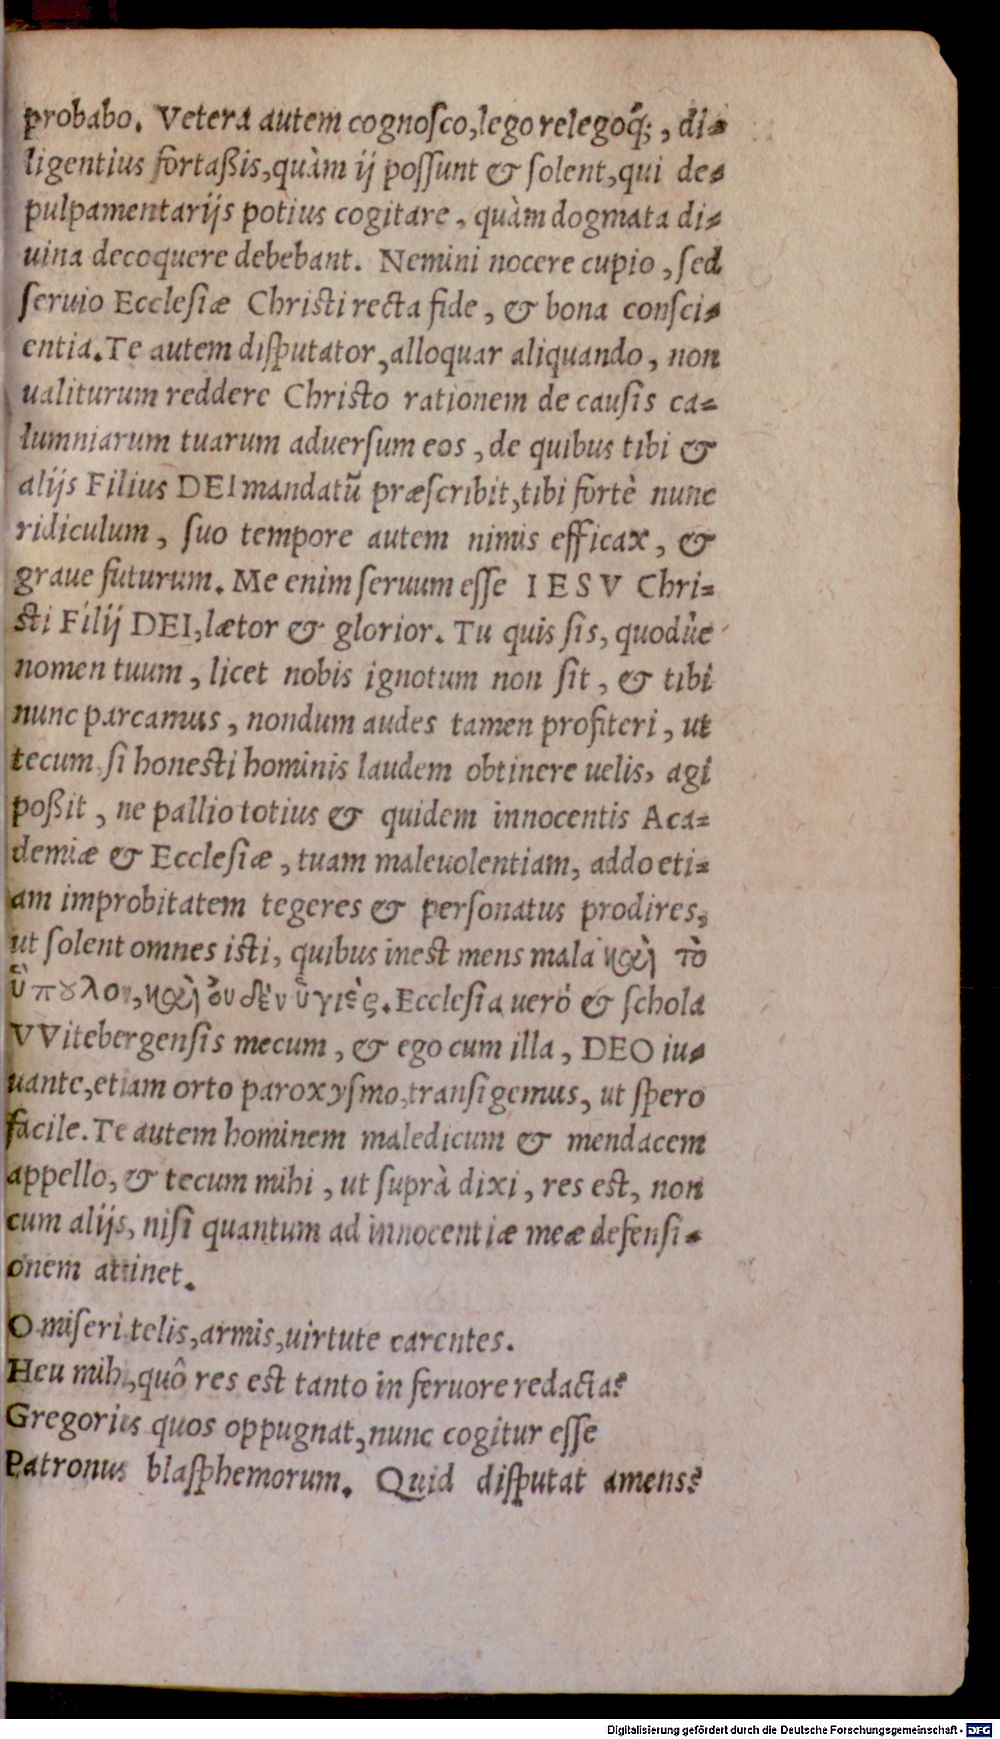 probabo. Vetera autem cognoſco,lego relegoq́;, di-
ligentius fortaßis,quàm ij poſſunt & ſolent,qui de-
pulpamentarijs potius cogitare, quàm dogmata di-
uina decoquere debebant. Nemini nocere cupio, ſed
ſeruio Eccleſiæ Chriſti recta fide, & bona conſci-
entia.Te autem diſputator,alloquar aliquando, non
ualiturum reddere Chriſto rationem de cauſis ca-
lumniarum tuarum aduerſum eos, de quibus tibi &
alijs Filius DEI mandatũ præſcribit,tibi fortè nunc
ridiculum, ſuo tempore autem nimis efficax, &
graue futurum. Me enim ſeruum eſſe IESV Chri-
ſti Filij DEI,lætor & glorior. Tu quis ſis, quodùe
nomen tuum, licet nobis ignotum non ſit, & tibi
nunc parcamus, nondum audes tamen profiteri, ut
tecum ſi honeſti hominis laudem obtinere uelis, agi
poßit, ne pallio totius & quidem innocentis Aca-
demiæ & Eccleſiæ, tuam maleuolentiam, addo eti-
am improbitatem tegeres & perſonatus prodires,
ut ſolent omnes iſti, quibus ineſt mens mala καὶ τὸ
ὕπουλον,καὶ οὐδὲν ὑγιὲς.Eccleſia uerò & ſchola
VVitebergenſis mecum, & ego cum illa, DEO iu-
uante,etiam orto paroxyſmo,tranſigemus, ut ſpero
facile.Te autem hominem maledicum & mendacem
appello, & tecum mihi, ut ſuprà dixi, res eſt, non
cum alijs, niſi quantum ad innocentiæ meæ defenſi-
onem attinet.
O miſeri telis,armis,uirtute carentes.
Heu mihi,quô res eſt tanto in feruore redacta?
Gregorius quos oppugnat,nunc cogitur eſſe
Patronus blaſphemorum. Quid diſputat amens?
Digitalisierung gefördert durch die Deutsche Forschungsgemeinschaft - DFG